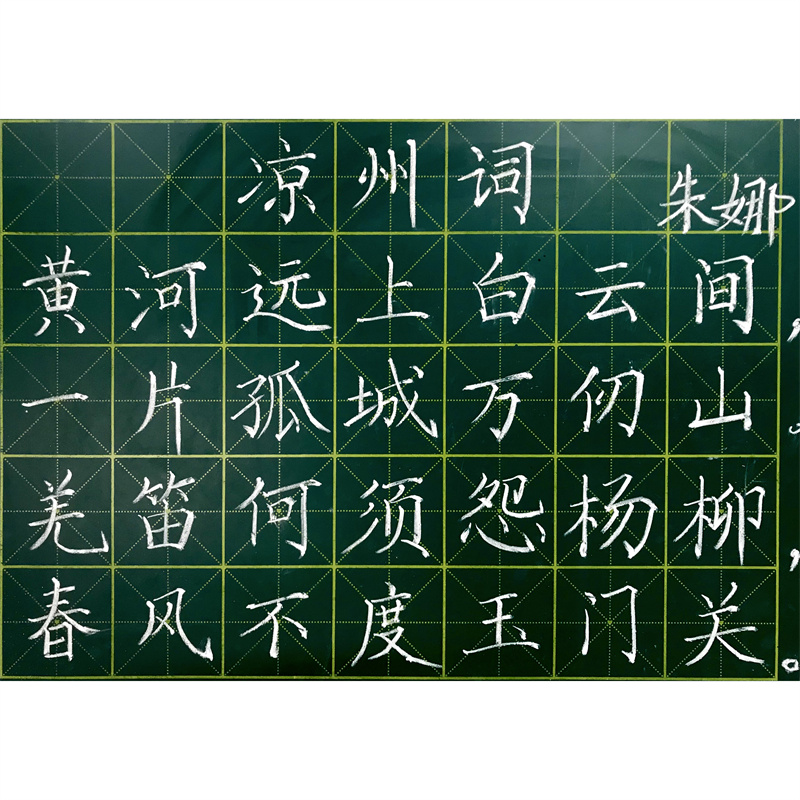 凉州词 朱娜
黄河远上白云间，
一片孤城万仞山。
羌笛何须怨杨柳，
春风不度玉门关。